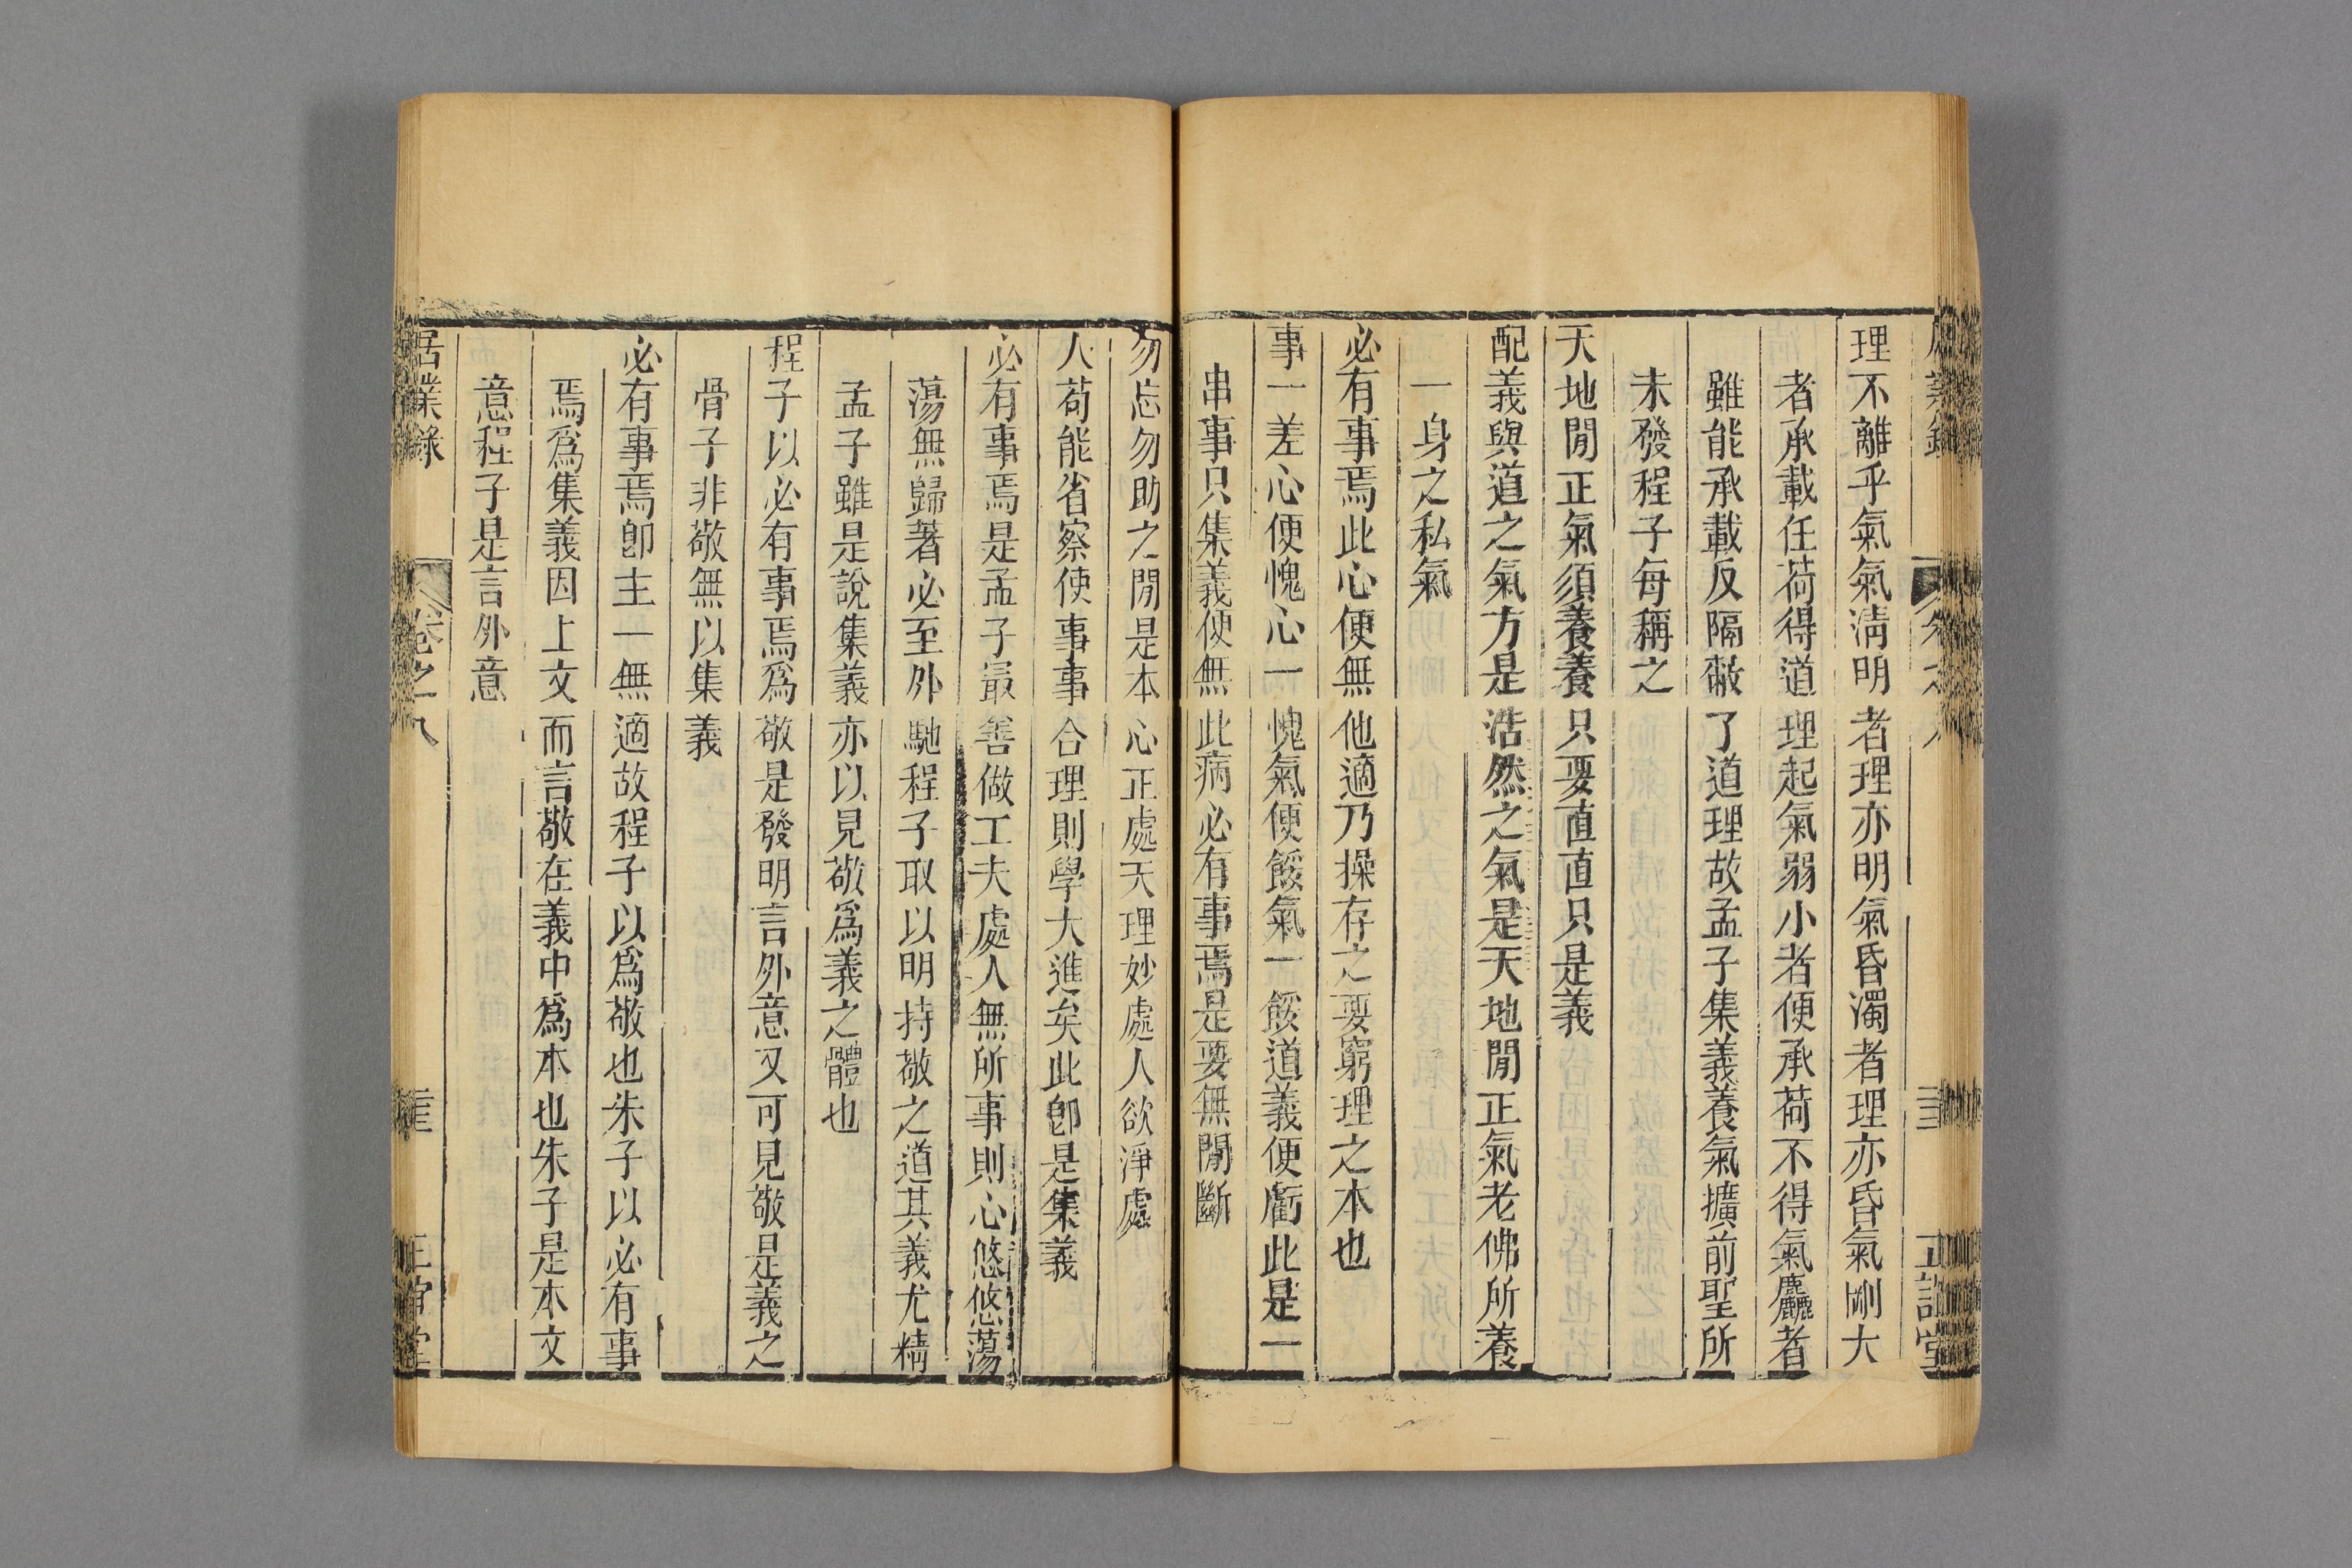 理不離乎氣氣淸明者理亦明氣昏濁者理亦昏氣剛大
者承載任荷得道理起氣弱小者便承荷不得氣麤者
雖能承載反隔蔽了道理故孟子集義養氣擴前聖所
未發程子每稱之
天地閒正氣須養養只要直直只是義
配義與道之氣方是浩然之氣是天地閒正氣老佛所養
一身之私氣
必有事焉此心便無他適乃操存之要窮理之本也
事一差心便愧心一愧氣便餒氣一餒道義便虧此是一
串事只集義便無此病必有事焉是要無閒斷
勿忘勿助之閒是本心正處天理妙處人欲淨處
人苟能省察使事事合理則學大進矣此卽是集義
必有事焉是孟子最善做工夫處人無所事則心悠悠蕩
蕩無歸著必至外馳程子取以明持敬之道其義尤精
孟子雖是說集義亦以見敬爲義之體也
程子以必有事焉爲敬是發明言外意又可見敬是義之
骨子非敬無以集義
必有事焉卽主一無適故程子以爲敬也朱子以必有事
焉爲集義因上文而言敬在義中爲本也朱子是本文
意程子是言外意
居業錄
卷之八